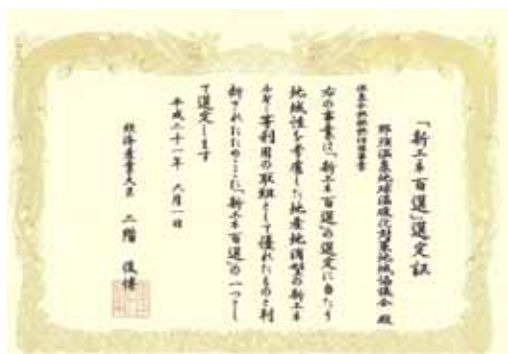 「新エネ百選」選定証
那須温泉地球温暖化対策地域協議会 殿
右の事業は、「新エネ百選」の選定に当たり
地域性を考慮した地産地消型の新エネ
ルギー等利用の取組として優れたものと判
断されたためここに「新エネ百選」の一つとし
て選定します
平成二十一年 六月一日
経済産業大臣 二階 俊博